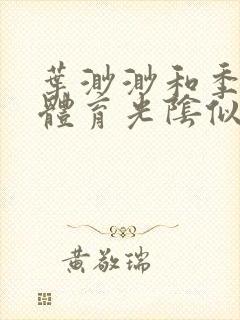 葉渺渺和季
體育光陰似
黃敬瑞